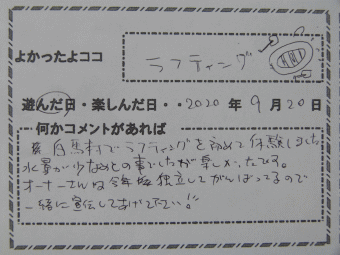 よかったよココ
ラフティング
遊んだ日・楽しんだ日・・2020年9月20日
何かコメントがあれば
馬村でラフティングを初めて体験しました
水量が少なめとの事でしたが楽しかったです。
オーナーさんは今年独立してがんばってるので
一緒に宣伝してあげて下さい!!